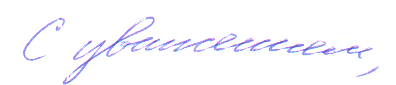 С уважением,